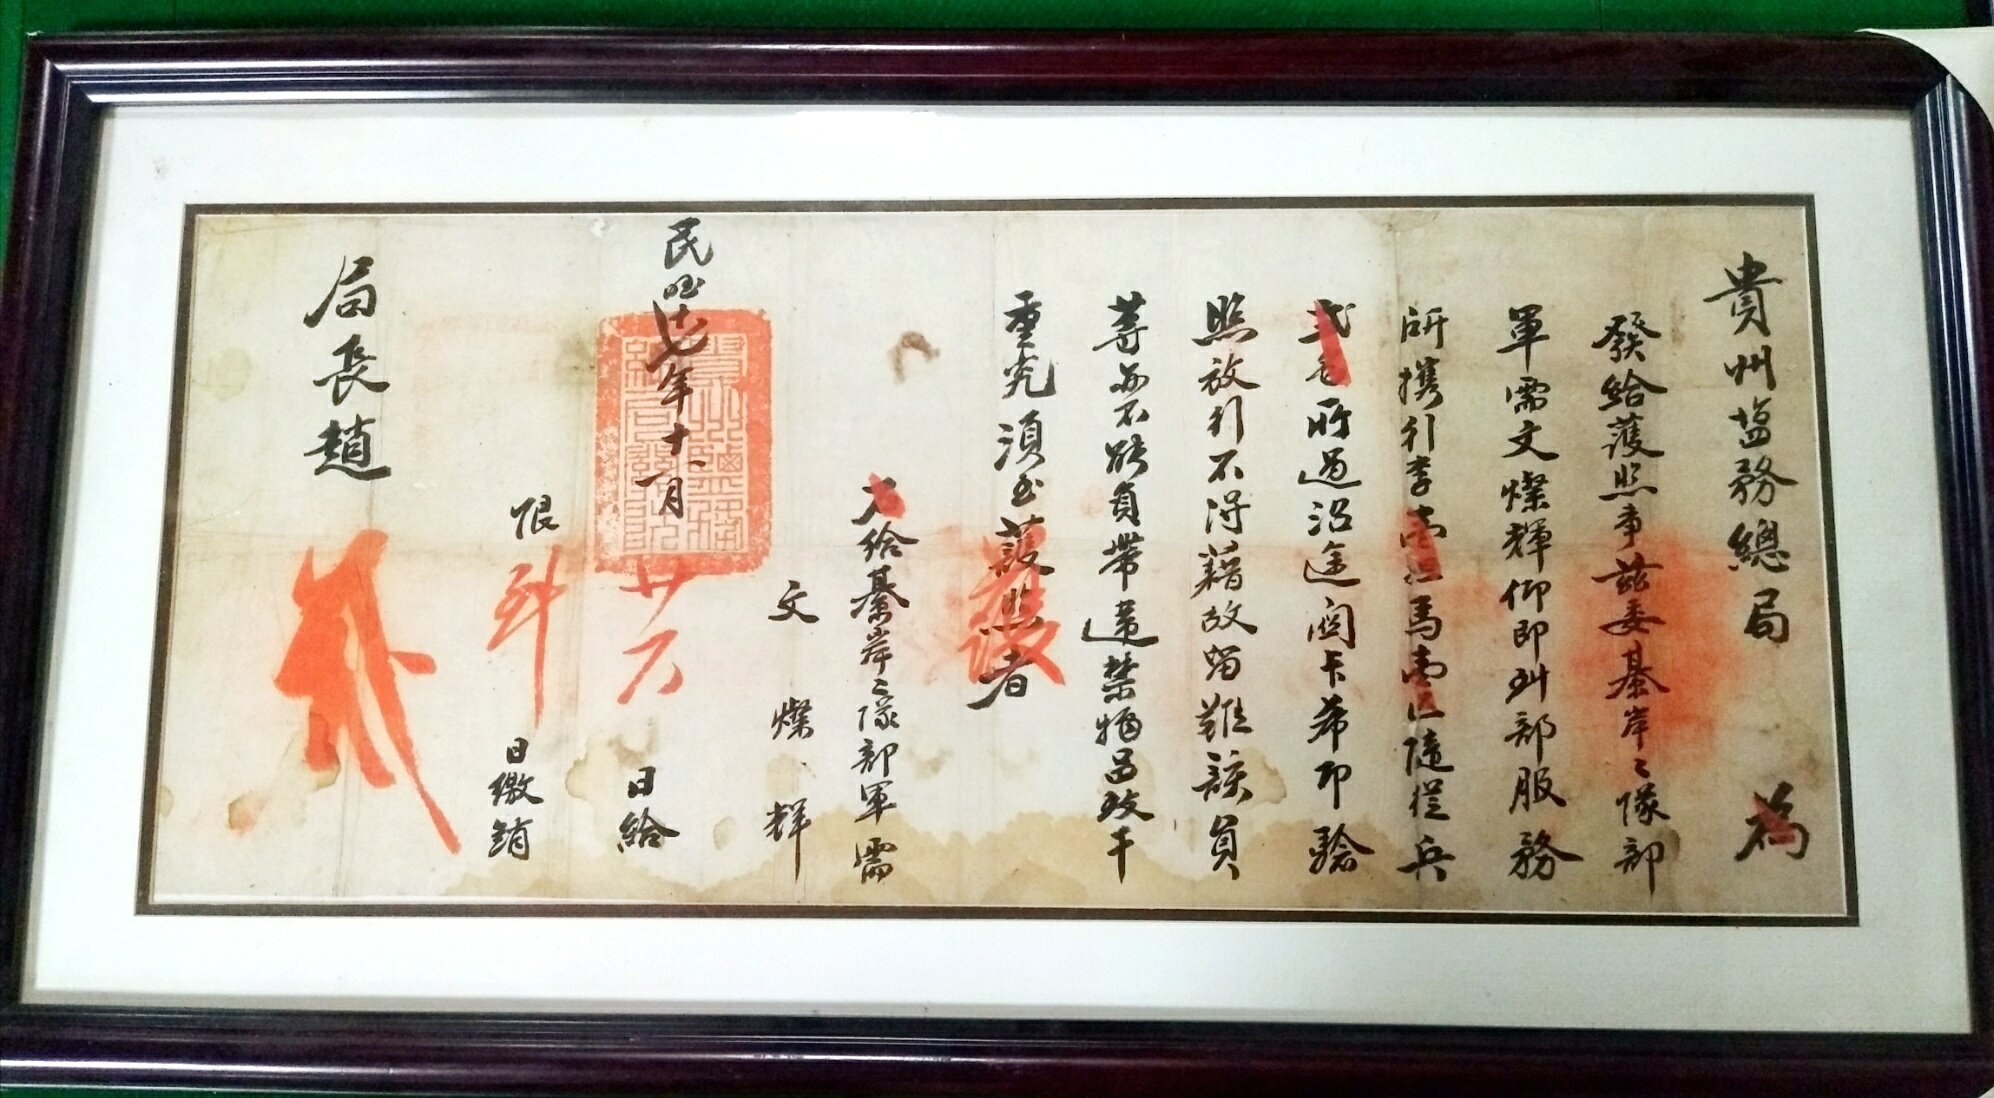 貴州塩務總局 為
發給護照事茲委綦岸二隊部
軍需文燦輝仰即到部服務
所攜引李壹担馬壹匹隨從兵
弍名所過沿途關卡希即驗
照放行不得藉故留難該員
等亦不能負帶違禁物品致干
重究須至護照者
右給綦岸二隊部軍需
文燦輝
民國十七年十一月廿六日給
限到日繳銷
局長趙